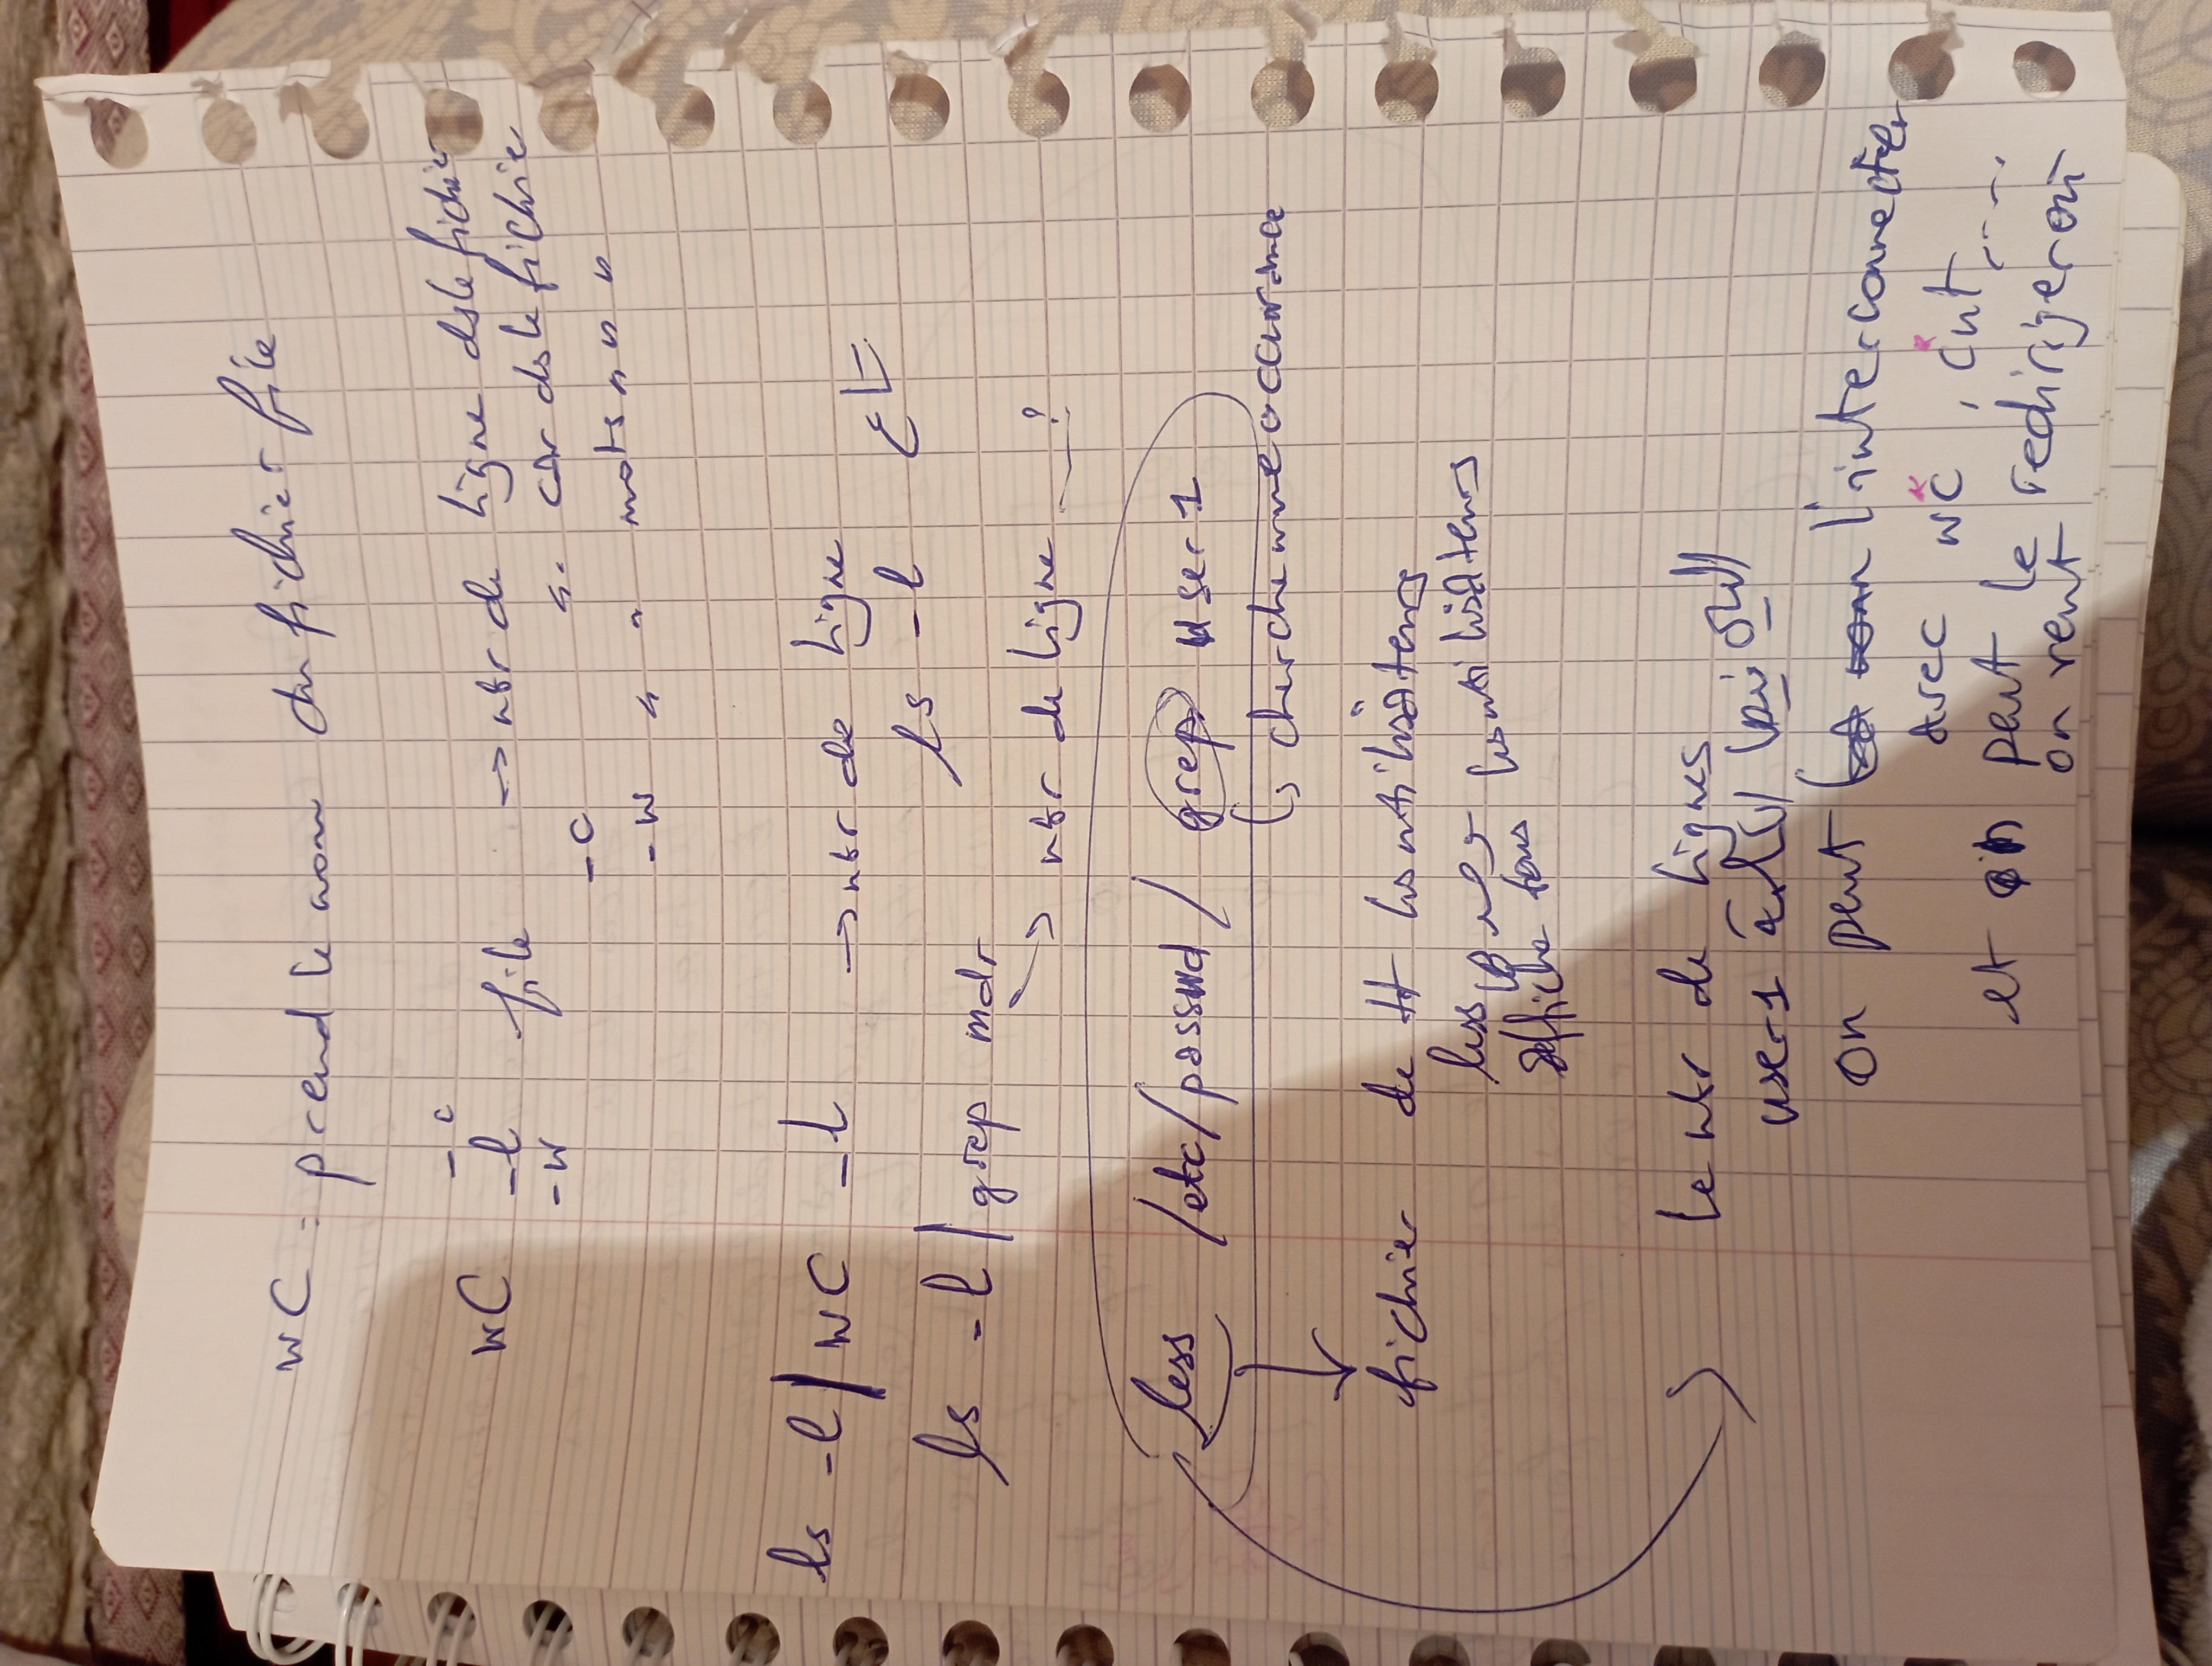 wc = prend le nom du fichier file
-c
wc -l file → nbr de ligne ds le fichier
-w
-c " " car ds le fichier
-w " " mots " " "
ls -l | wc -l → nbr de ligne
ls -l
ls -l | grep mdr
→ nbr de ligne
less /etc/passwd / grep user1
↳ cherche une occurance
fichier de tt les utilisateurs
les utilisateurs
affiche tous
le nbr de lignes
user1
on peut l'interconnecter
avec wc, cut ...
et on peut le rediriger où
on veut